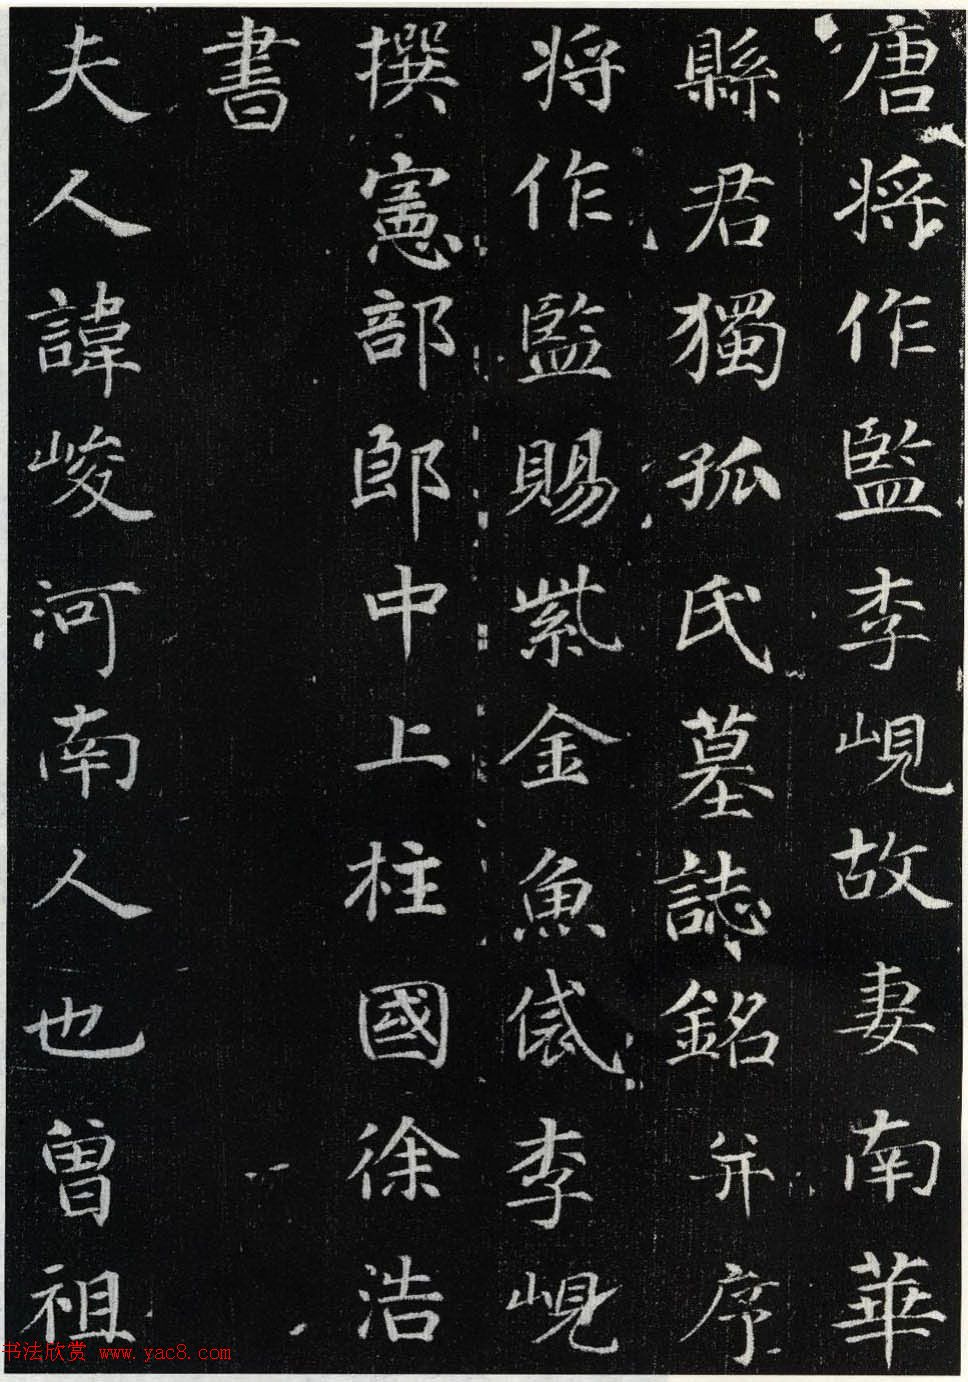 唐将作監李峴故妻南華
縣君獨孤氏墓誌銘并序
将作監賜紫金魚袋李峴
撰憲部郎中上柱國徐浩
書
夫人諱峻河南人也曽祖
书法欣赏 www.yac8.com